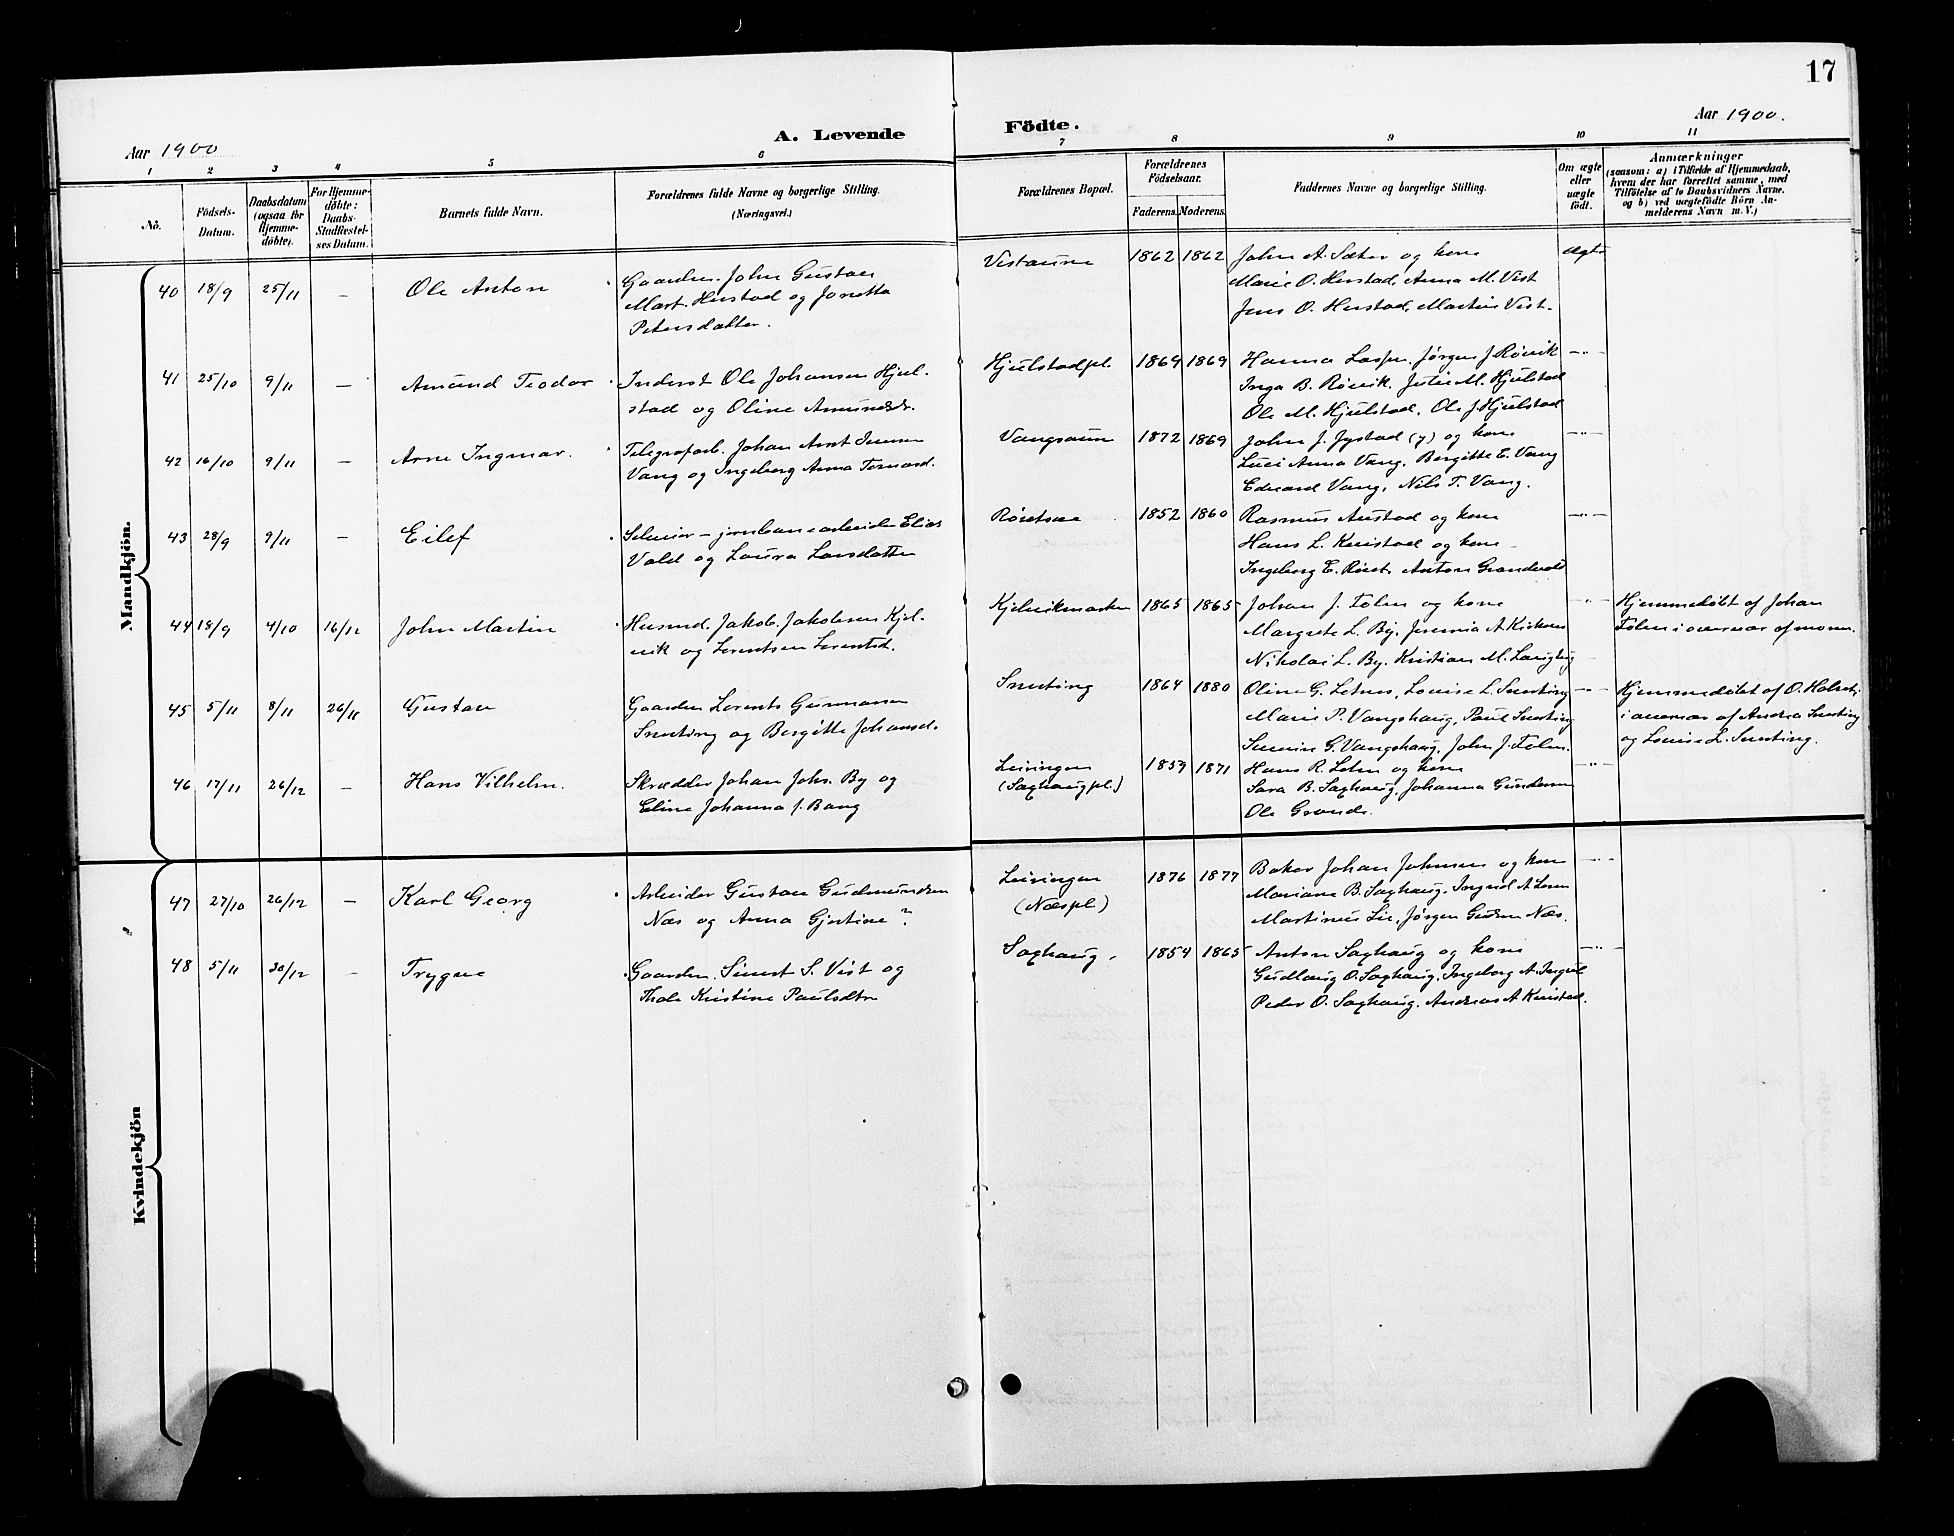 17
Aar 1900
A. Levende
Födte.
Aar 1900.
1 2 3 4 5 6 7 8 9 10 11
No.
Födsels-Datum.
Daabsdatum (ogsaa for Hjemme-döbte).
For Hjemme-döbte: Daabs-Stadfæstel-ses Datum.
Barnets fulde Navn.
Forældrenes fulde Navne og borgerlige Stilling. (Næringsvei.)
Forældrenes Bopæl.
Forældrenes Födselsaar.
Faderens. Moderens.
Faddernes Navne og borgerlige Stilling.
Om ægte eller uægte födt.
Anmærkninger (saasom: a) i Tilfælde af Hjemmedaab, hvem der har forrettet samme, med Tilföielse af to Daabsvidners Navne. og b) ved uægtefödte Börn Anmelderens Navn m. V.)
Mandkjön.
40 18/9 25/11 — Ole Anton
Gaardm. John Gustav
Mart. Herstad og Jonetta
Petersdatter.
Vistaune 1862 1862
John A. Sæter og kone
Marie O. Herstad, Anna M. Vist
Jens O. Herstad, Martin Vist.
Ægte
41 25/10 9/11 — Amund Teodor
Inderst Ole Johansen Hjul-
stad og Oline Amundsdr.
Hjulstadpl. 1869 1869
Hanna Jørgen J. Røvik
Inga B. Røvik. M. Hjulstad
Ole M. Hjulstad, Ole J. Hjulstad
—"—
42 16/10 9/11 — Arne Ingmar.
Telegrafarb. Johan Arnt Jensen
Vang og Ingeborg Anna
Vangsaun 1872 1869
John J. Jystad (y) og kone
Anna Vang, Bergitte E. Vang
Edvard Vang, Nils T. Vang.
—"—
43 28/9 9/11 — Eilef
Selveier – jernbanearbeider Elias
Vold og Laura Larsdatter
1852 1860
Rasmus Austad og kone
Hans L. Kvistad og kone
Ingeborg E. Anton
—"—
44 18/9 4/10 16/12 John Martin
Husmd. Jakob Jakobsen Kjel-
vik og Lorentsd.
Kjelvikmarken 1865 1865
Johan J. Folen og kone
Margrete L. By, A.
Nikolai L. By. Kristian M.
—"—
Hjemmedöbt af Johan
Folen i overvær af moren.
45 5/11 8/11 26/11 Gustav
Gaardm. Lorents Gunnarsen
Snusting og Bergitte Johansd.
Snusting 1864 1880
Oline G. Letnes, Louise L. Snusting
Marie P. Vangshaug, Paul Snusting
G. Vangshaug, John J. Folen.
—"—
Hjemmedöbt af O.
i overvær af Andrea Snusting
og Louise L. Snusting.
46 17/11 26/12 — Hans Vilhelm.
Skrædder Johan Johs. By og
Eline Johanna f. Bang
(Saxhaugpl.) 1859 1871
Hans R. og kone
Sara B. Saxhaug, Johanna
Ole Grande.
—"—
Kvindekjön
47 27/10 26/12 — Karl Georg
Arbeider Gustav Gudmundsen
Næs og Anna Gjertine ?
(Næspl.) 1876 1877
Baker Johan Johnsen og kone
Mariane B. Saxhaug, A.
Martinus Lie, Jørgen Næs.
—"—
48 5/11 30/12 — Trygve
Gaardm. Simet S. Vist og
Thale Kristine Paulsdtr
Saxhaug. 1854 1865
Anton Saxhaug og kone
Gudlaug O. Saxhaug, Ingeborg A.
Peder O. Saxhaug, Andreas A. Kvistad.
—"—